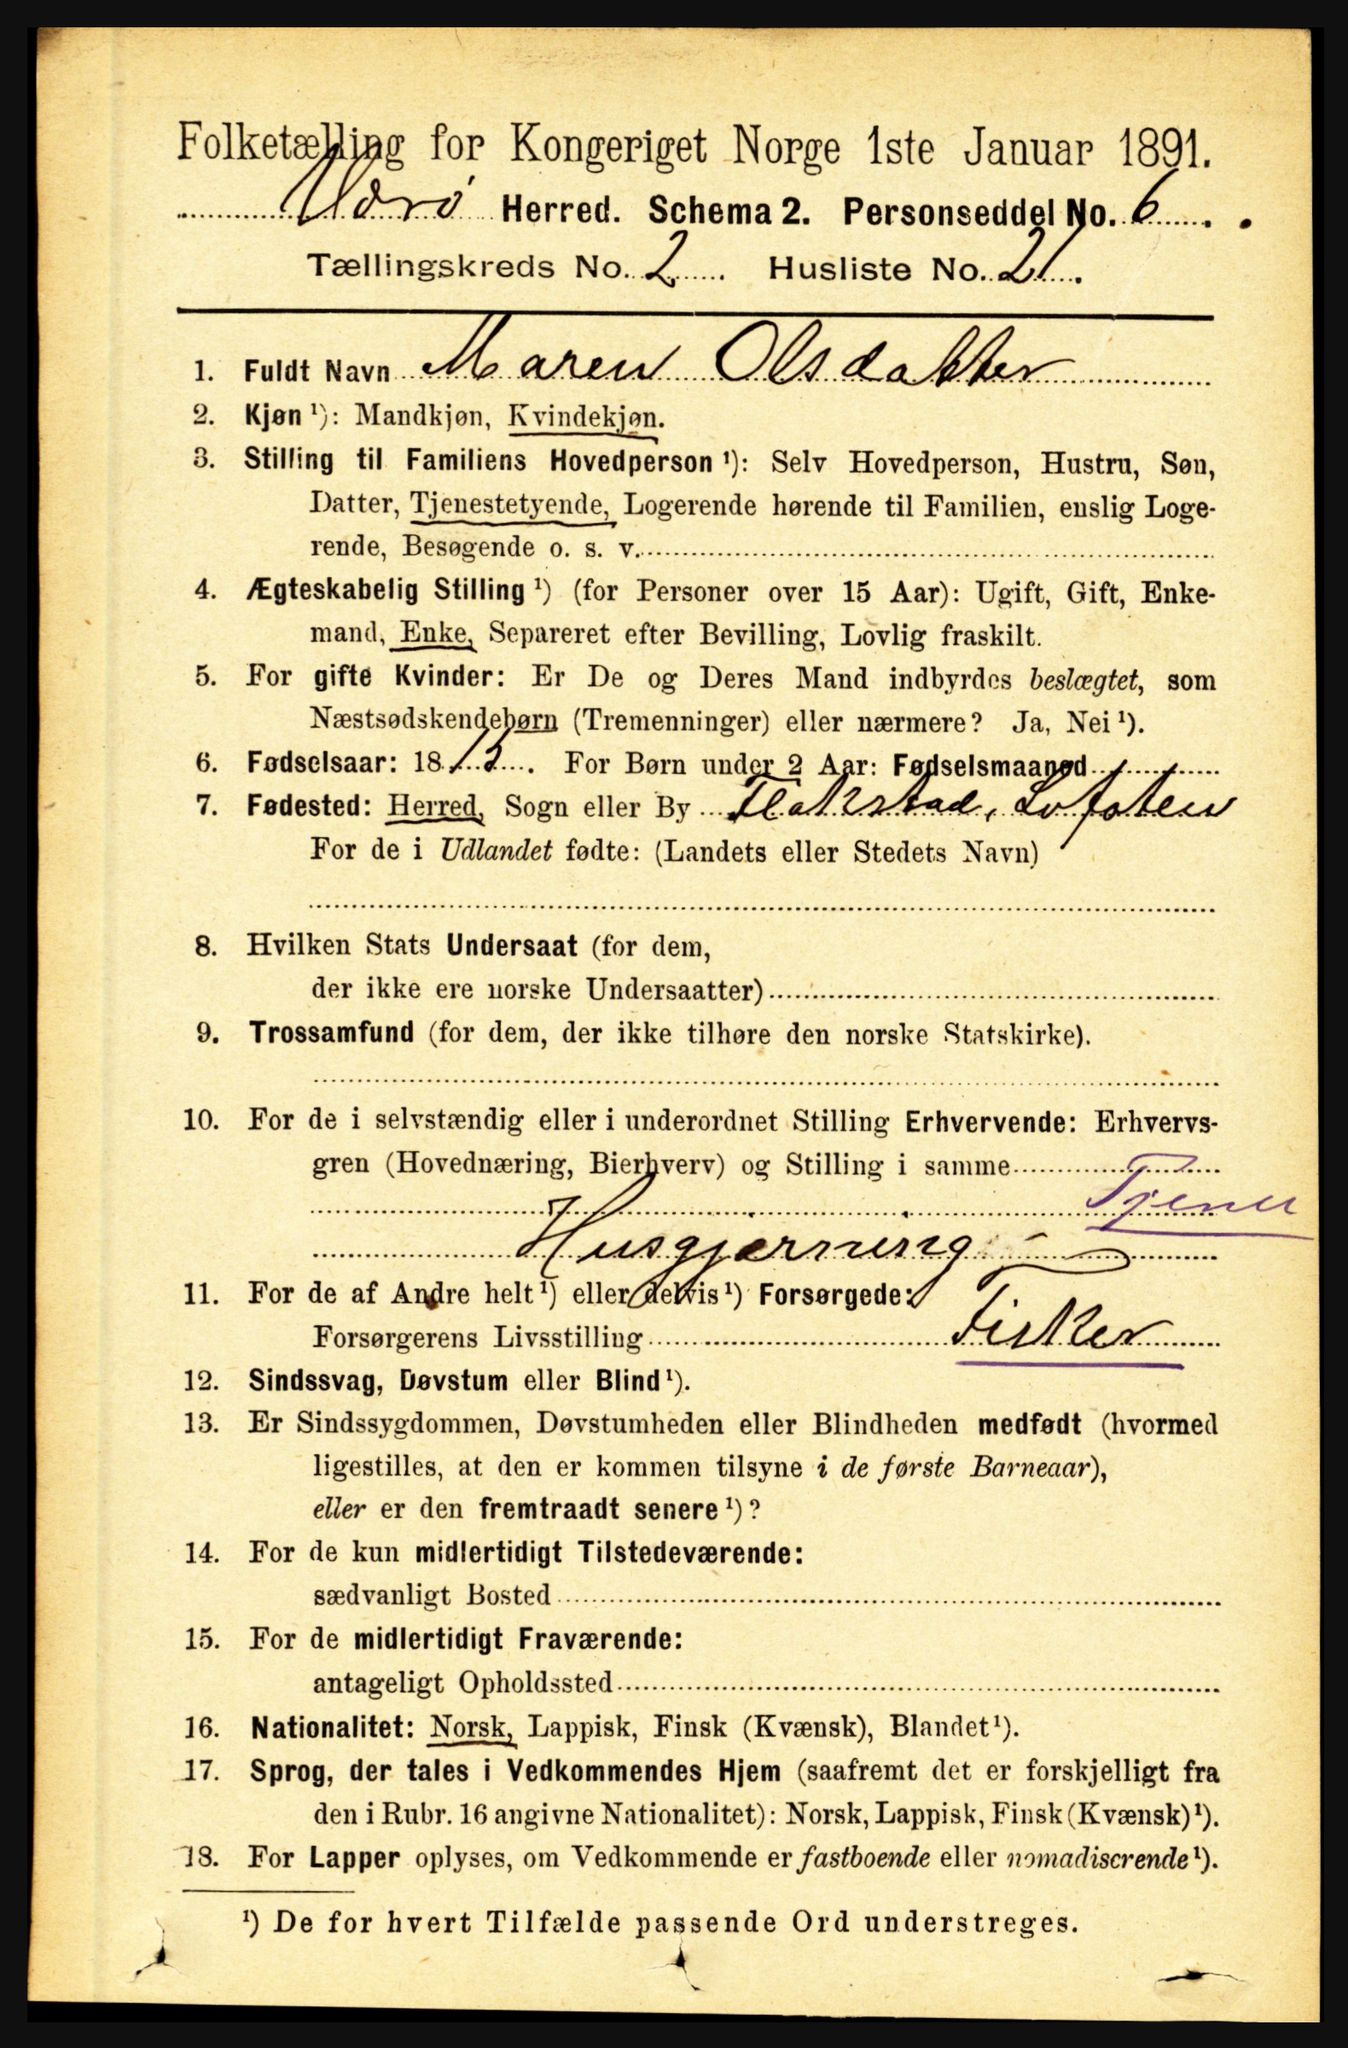 Folketælling for Kongeriget Norge 1ste Januar 1891.
Værø Herred. Schema 2. Personseddel No. 6.
Tællingskreds No. 2 Husliste No. 21.
1. Fuldt Navn Maren Olsdatter
2. Kjøn ¹): Mandkjøn, Kvindekjøn.
3. Stilling til Familiens Hovedperson ¹): Selv Hovedperson, Hustru, Søn,
Datter, Tjenestetyende, Logerende hørende til Familien, enslig Loge-
rende, Besøgende o. s. v.
4. Ægteskabelig Stilling ¹) (for Personer over 15 Aar): Ugift, Gift, Enke-
mand, Enke, Separeret efter Bevilling, Lovlig fraskilt.
5. For gifte Kvinder: Er De og Deres Mand indbyrdes beslægtet, som
Næstsødskendebørn (Tremenninger) eller nærmere? Ja, Nei ¹).
6. Fødselsaar: 18 For Børn under 2 Aar: Fødselsmaaned
7. Fødested: Herred, Sogn eller By Flakstad, Lofoten
For de i Udlandet fødte: (Landets eller Stedets Navn)
8. Hvilken Stats Undersaat (for dem,
der ikke ere norske Undersaatter)
9. Trossamfund (for dem, der ikke tilhøre den norske Statskirke).
10. For de i selvstændig eller i underordnet Stilling Erhvervende: Erhvervs-
gren (Hovednæring, Bierhverv) og Stilling i samme
Tjener
Husgjerning
11. For de af Andre helt ¹) eller delvis ¹) Forsørgede:
Forsørgerens Livsstilling Fisker
12. Sindssvag, Døvstum eller Blind ¹).
13. Er Sindssygdommen, Døvstumheden eller Blindheden medfødt (hvormed
ligestilles, at den er kommen tilsyne i de første Barneaar),
eller er den fremtraadt senere ¹)?
14. For de kun midlertidigt Tilstedeværende:
sædvanligt Bosted
15. For de midlertidigt Fraværende:
antageligt Opholdssted
16. Nationalitet: Norsk, Lappisk, Finsk (Kvænsk), Blandet ¹).
17. Sprog, der tales i Vedkommendes Hjem (saafremt det er forskjelligt fra
den i Rubr. 16 angivne Nationalitet): Norsk, Lappisk, Finsk (Kvænsk) ¹).
18. For Lapper oplyses, om Vedkommende er fastboende eller nomadiserende ¹).
¹) De for hvert Tilfælde passende Ord understreges.